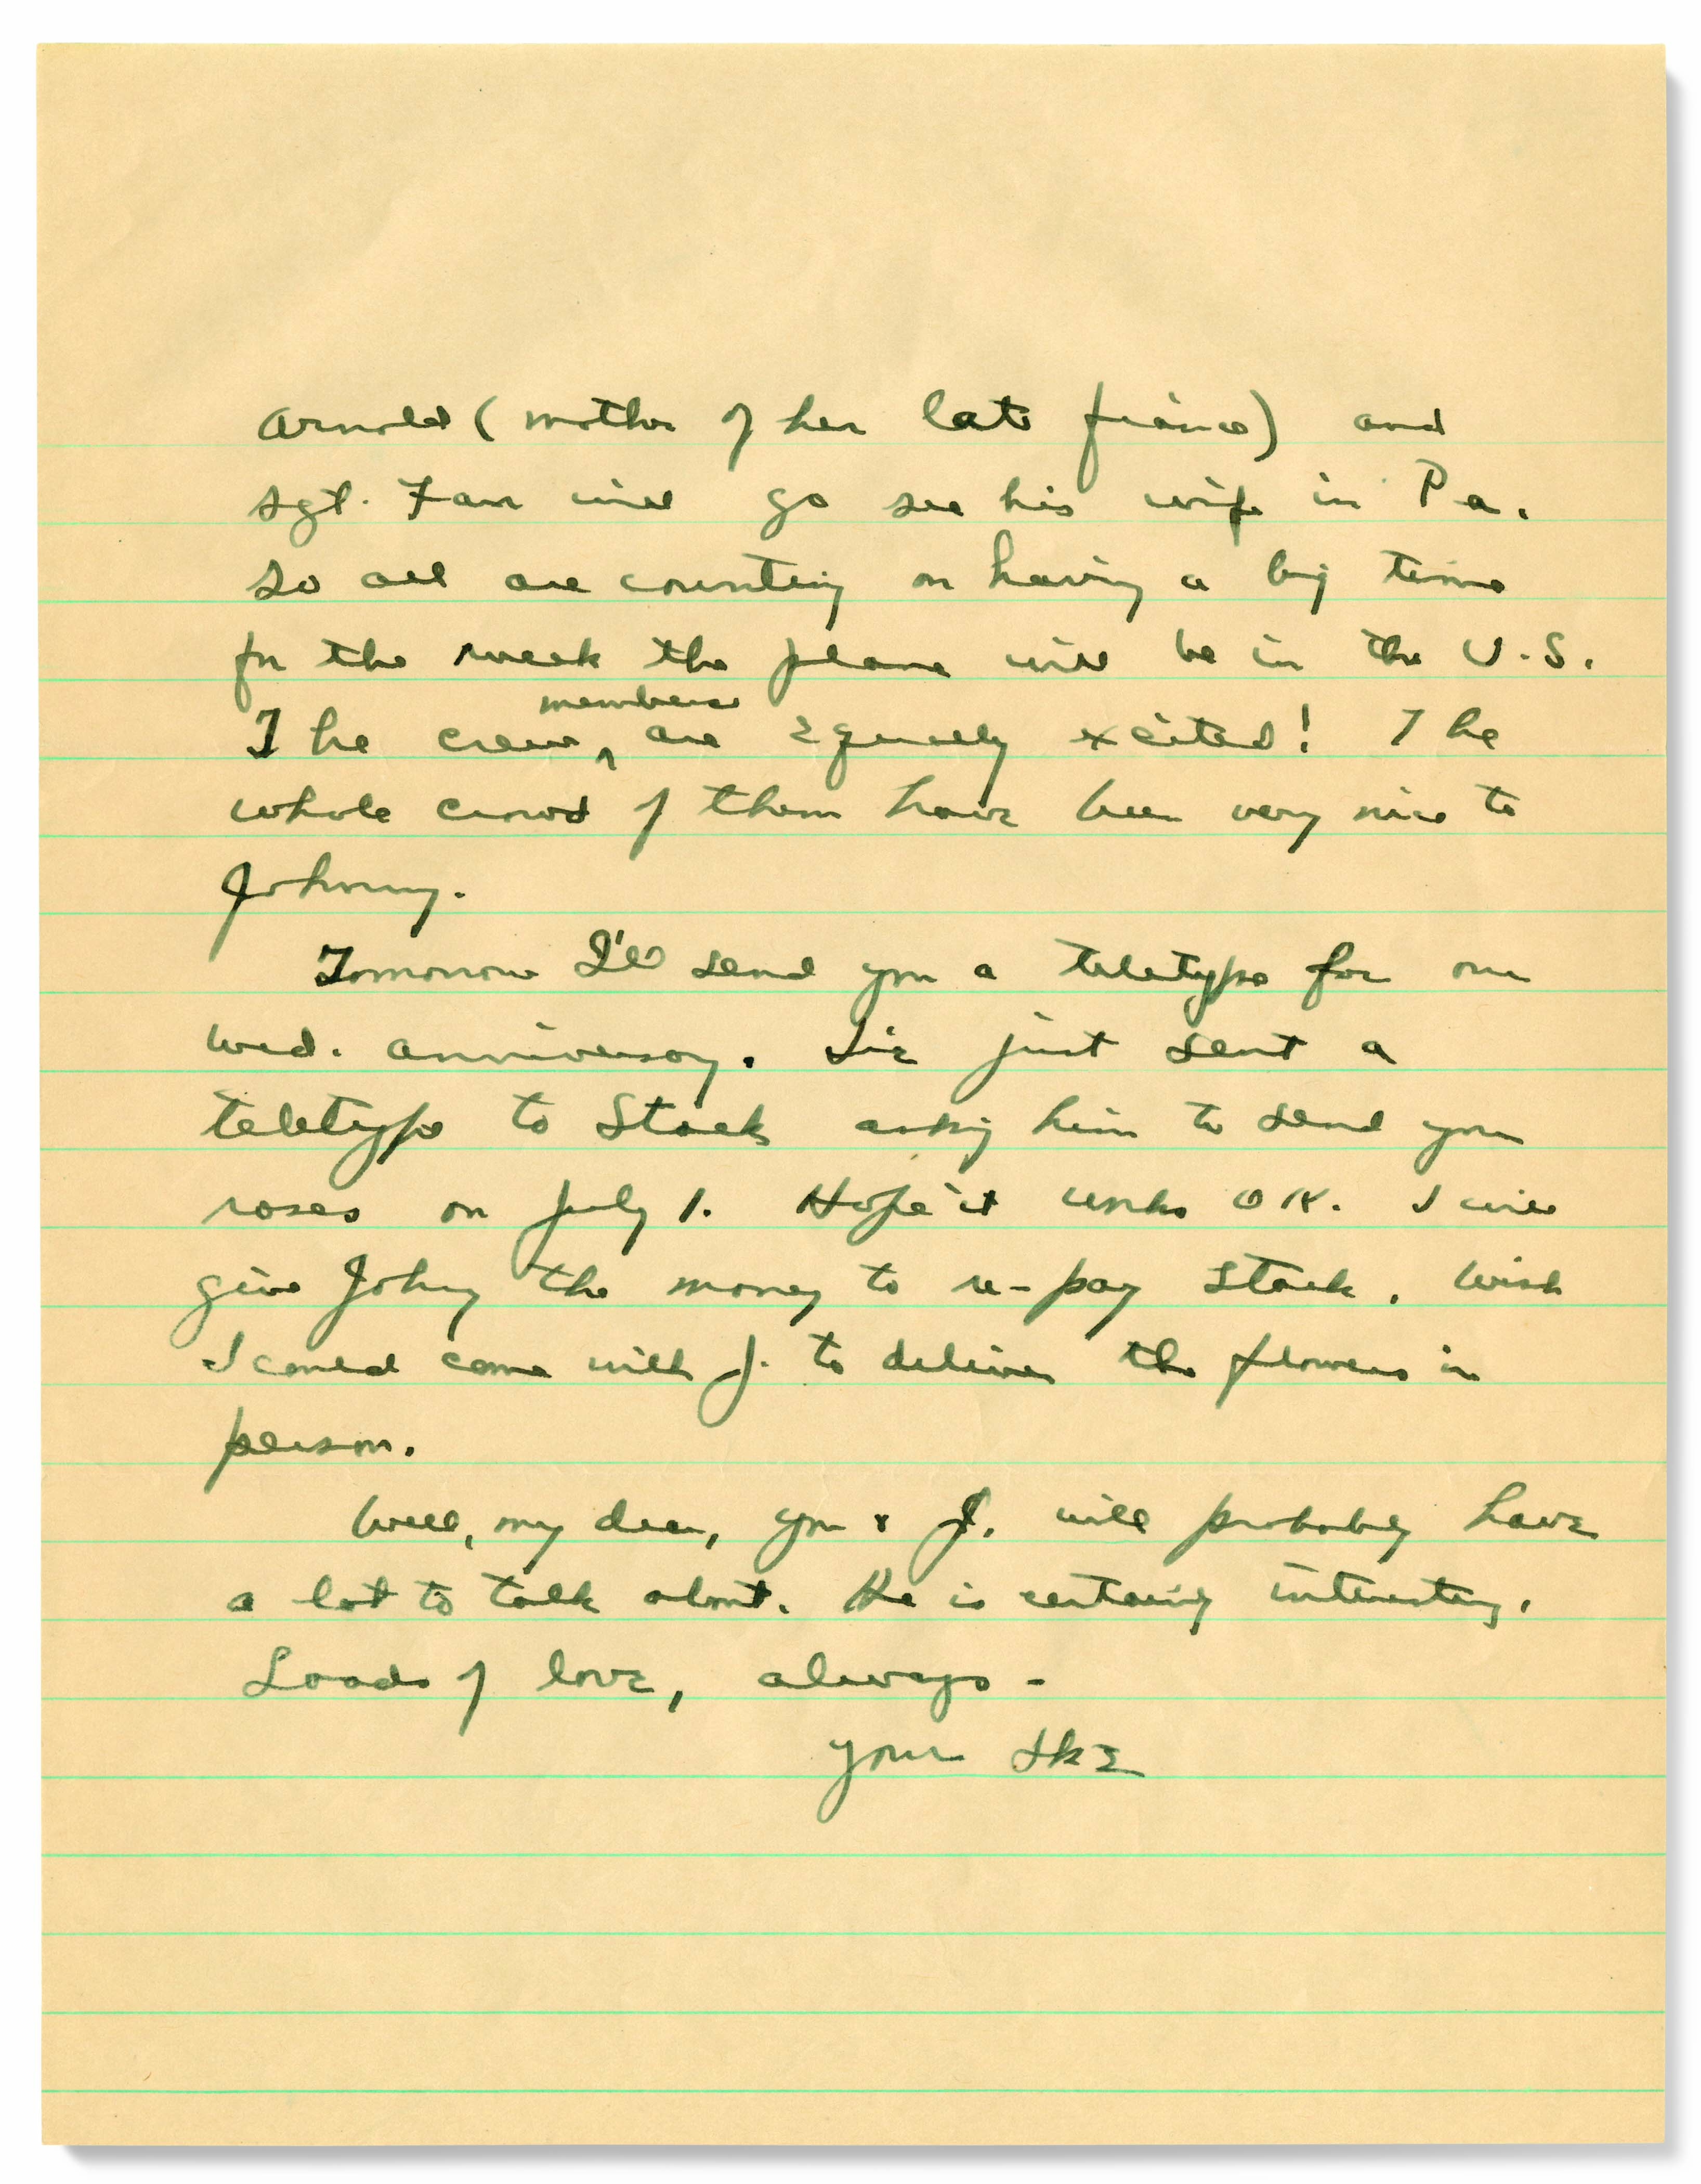 Arnold (mother of her late fiance) and
Sgt. Farr will go see his wife in Pa.
So all are counting on having a big time
for the week the plane will be in the U.S.
The crew members are equally excited! The
whole crowd of them have been very nice to
Johnny.
Tomorrow I'll send you a teletype for our
wed. anniversary. I've just sent a
teletype to Stack asking him to send you
roses on July 1. Hope it works OK. I will
give Johny the money to re-pay Stack. Wish
I could come with J. to deliver the flowers in
person.
Well, my dear, you & J. will probably have
a lot to talk about. He is certainly interesting.
Loads of love, always -
Your Ike